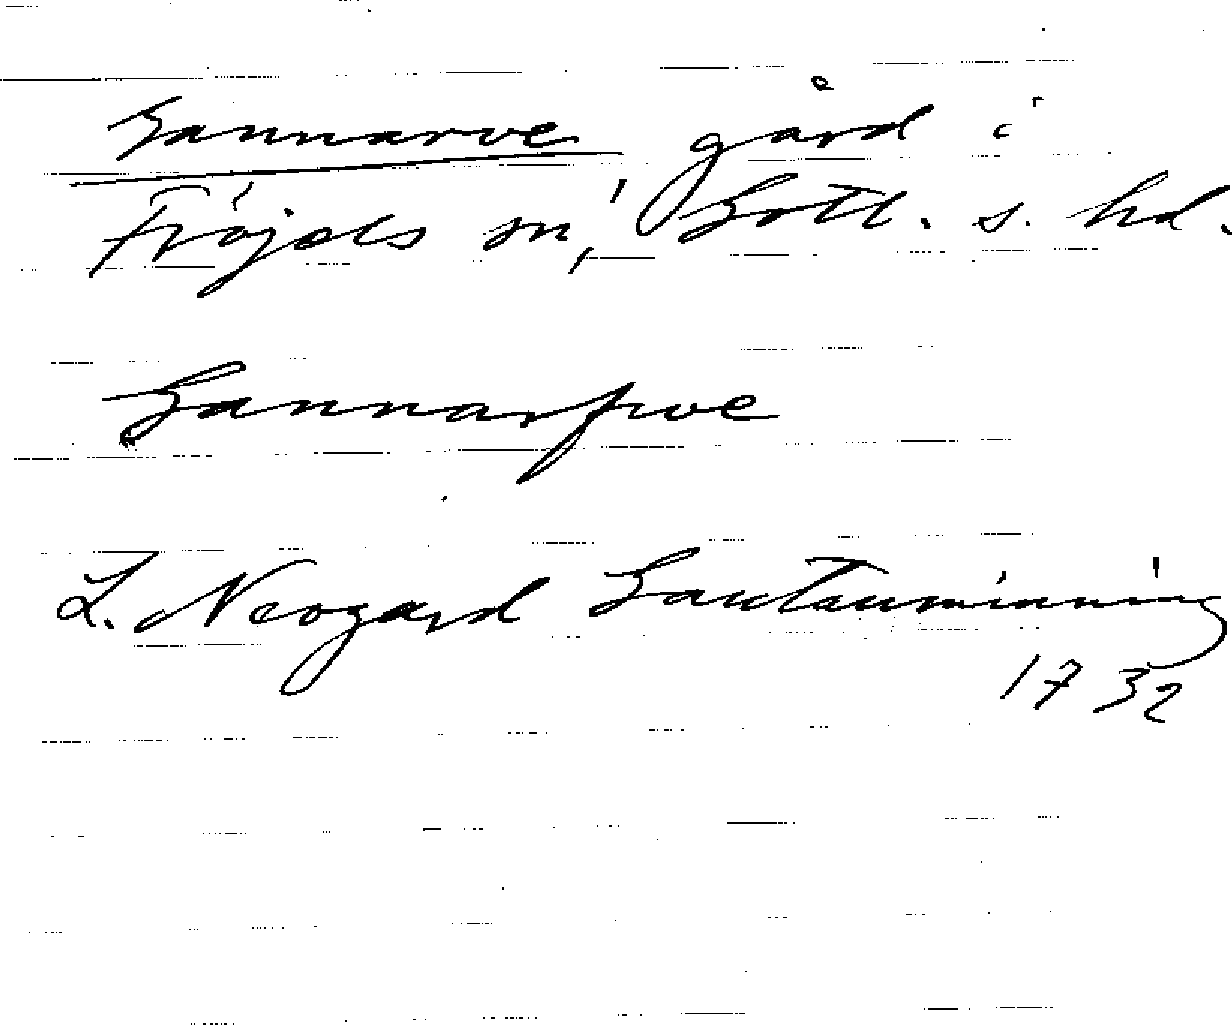 Gannarve, gård i
Fröjels sn, Gotl. s. hd.
Gannarfwe
L. Neogard Gautauminning
1732